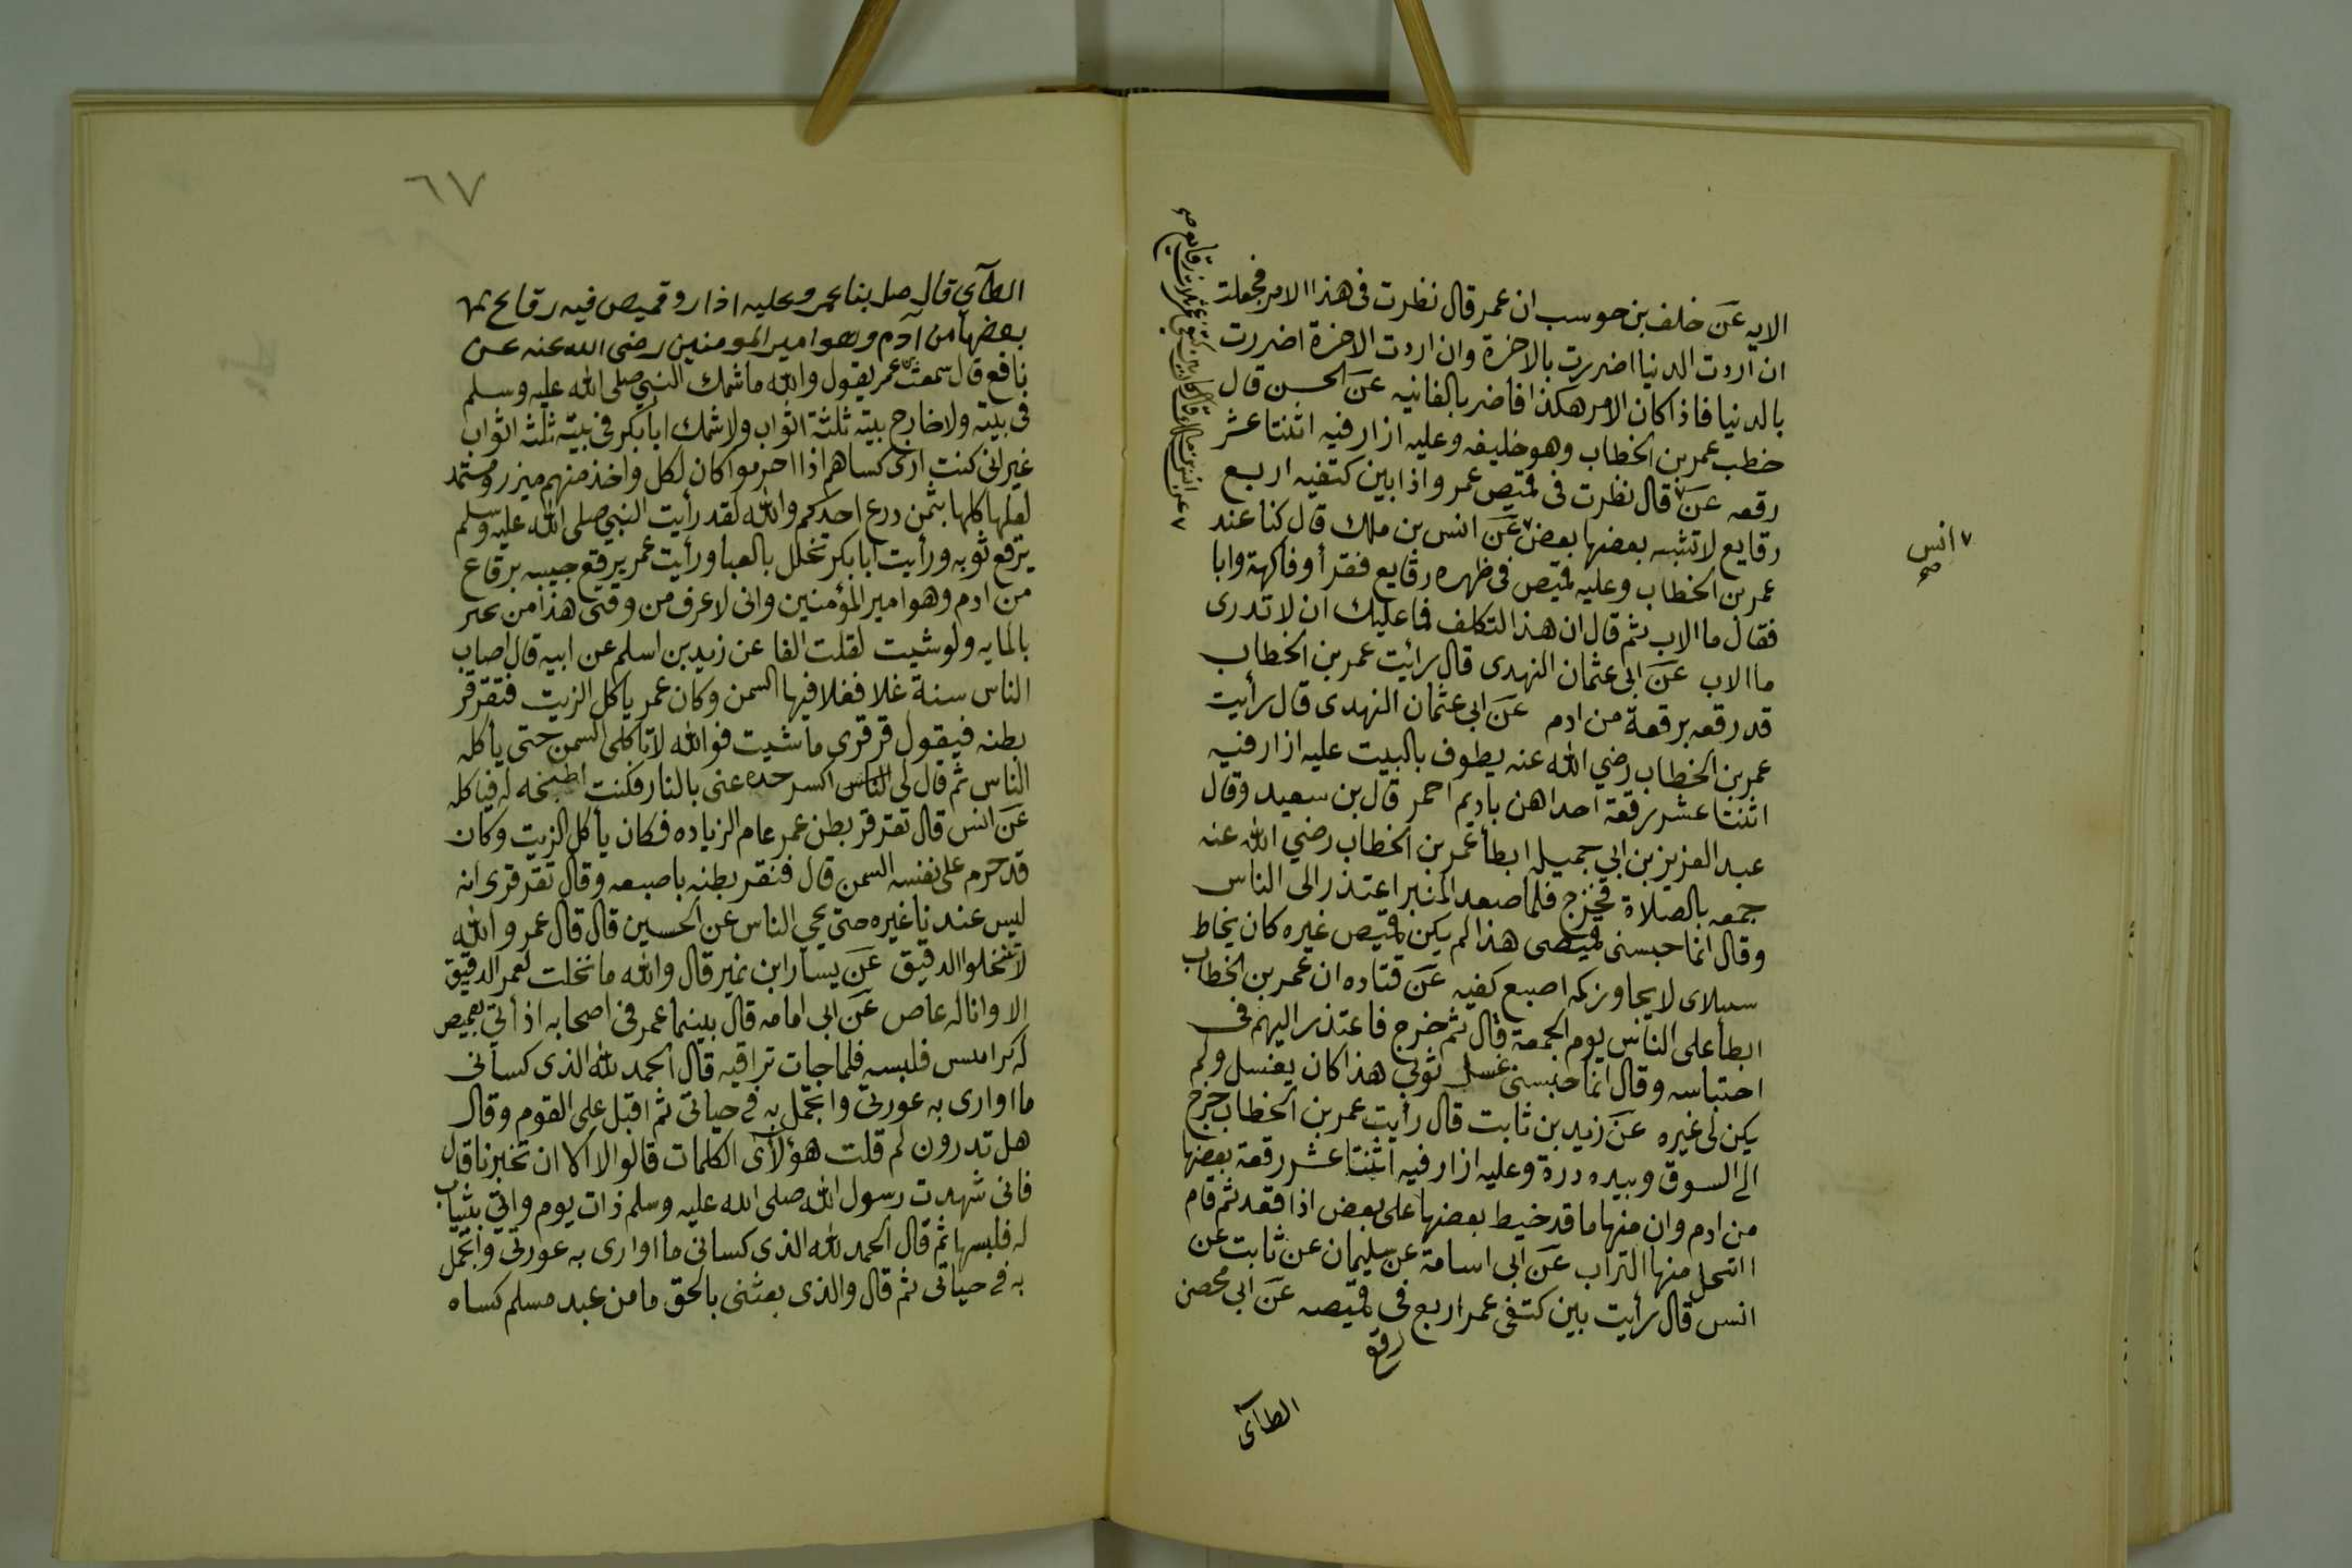 الايه عن خلف بن حوسب ان عمر قال نظرت فى هذا الامر فجعلت
ان اردت الدنيا اضررت بالاخرة وان اردت الاخرة اضررت
بالدنيا فاذا كان الامر هكذا فاضر بالفانيه عن الحسن قال
خطب عمر بن الخطاب وهو خليفه وعليه ازار فيه اثنتا عشر
رقعه عن٧ قال نظرت فى قميص عمر واذا بين كتفيه اربع
رقايع لا تشبه بعضها بعض٧ عن انس بن ملك قال كنا عند
عمر بن الخطاب وعليه قميص فى ظهره رقايع فقرأ وفاكهة وابا
فقال ما الاب ثم قال ان هذا التكلف فما عليك ان لا تدرى
ما الاب عن ابى عثمان النهدى قال رائيت عمر بن الخطاب
قد رقعه برقعة من ادم عن ابى عثمان النهدى قال رأيت
عمر بن الخطاب رضي الله عنه يطوف بالبيت عليه ازار فيه
اثنتا عشر رقعة احداهن باديم احمر قال بن سعيد وقال
عبد العزيز بن ابى جميله ابطأ عمر بن الخطاب رضي الله عنه
جمعه بالصلاة فخرج فلما صعد المنبر اعتذر الى الناس
وقال انما حبسنى قميصى هذا لم يكن قميص غيره كان يخاط
سبلاى لا يجاوز كمه اصبع كفيه عن قتاده ان عمر بن الخطاب
ابطأ على الناس يوم الجمعة قال ثم خرج فاعتذر اليهم فى
احتباسه وقال انما حبسنى غسل ثوبى هذا كان يغسل ولم
يكن لى غيره عن زيد بن ثابت قال رأيت عمر بن الخطاب خرج
الى السوق وبيده درة وعليه ازار فيه اثنتا عشر رقعة بعضها
من ادم وان منها ما قد خيط بعضها على بعض اذا قعد ثم قام
انتخل منها التراب عن ابى اسامة عن سليمان عن ثابت عن
انس قال رأيت بين كتفى عمر اربع فى قميصه عن ابى محصن
رقع
الطآى
٧ انس
صح
٦٧
الطآى قال صل بنا عمر وعليه اذار وقميص فيه رقاع
بعضها من آدم وهو امير المومنين رضى الله عنه عن
نافع قال سمعت بن عمر يقول والله ما شمك النبي صلى الله عليه وسلم
فى بيته ولا خارج بيته ثلثة اثواب ولا شمك ابا بكر فى بيته ثلثه اثواب
غير انى كنت ارى كساهم اذا احرموا كان لكل واخذ منهم ميزر
لعلها كلها بثمن درع احدكم والله لقد رأيت النبي صلى الله عليه وسلم
يرقع ثوبه ورأيت ابا بكر تخلل بالعبا ورأيت عمر يرقع جيبه برقاع
من ادم وهو امير المؤمنين وانى لاعرف من وقتى هذا من
بالمايه ولو شيت لقلت الفا عن زيد بن اسلم عن ابيه قال اصاب
الناس سنة غلا فغلا فيها السمن وكان عمر ياكل الزيت فتقرقر
بطنه فيقول قرقرى ما شيت فوالله لا تاكلى السمن حتى يأكله
الناس ثم قال لى الناس اكسر حده عنى بالنار فكنت اطبخه له فياكله
عن انس قال تقرقر بطن عمر عام الزياده فكان يأكل الزيت وكان
قد حرم على نفسه السمن قال فنقر بطنه باصبعه وقال تقرقرى انه
ليس عندنا غيره حتى يحي الناس عن الحسين قال قال عمر والله
لا تنخلوا الدقيق عن يسار ابن نمير قال والله ما نخلت لعمر الدقيق
الا وانا له عاص عن ابى امامه قال بينما عمر فى اصحابه اذ أتى بقميص
له كرابيس فلبسه فلما جات تراقيه قال الحمد لله الذى كسانى
ما اوارى به عورتى واتجمل به فى حياتى ثم اقبل على القوم وقال
هل تدرون لم قلت هؤلاى الكلمات قالوا لا الا ان تخبرنا قال
فانى شهدت رسول الله صلى الله عليه وسلم ذات يوم واتى بثياب
له فلبسها ثم قال الحمد لله الذى كسانى ما اوارى به عورتى واتجمل
به فى حياتى ثم قال والذى بعثنى بالحق ما من عبد مسلم كساه